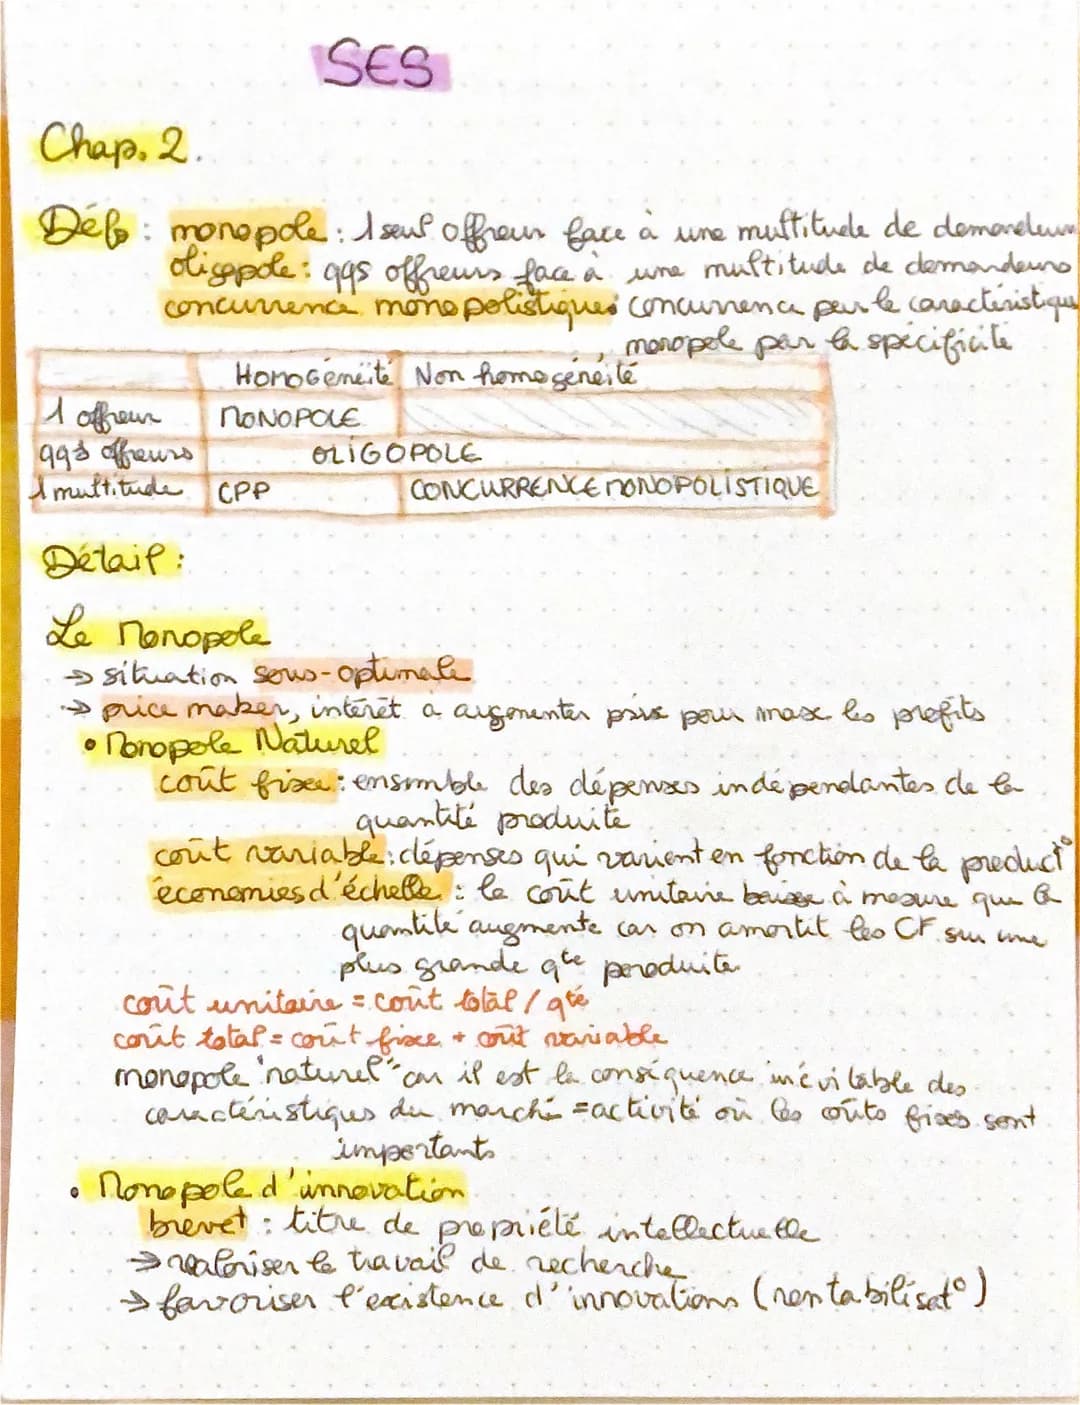 SES
Chap. 2.
Défs : monopole : 1 seul offreur face à une multitude de demandeurs
oligopole : qqs offreurs face à une multitude de demandeurs
concurrence monopolistique : concurrence par la caractéristique
monopole par la spécificité
Homogénéité Non homogénéité
1 offreur MONOPOLE
qqs offreurs OLIGOPOLE
1 multitude CPP CONCURRENCE MONOPOLISTIQUE
Détail :
Le Monopole
→ situation sous-optimale
→ price maker, intérêt à augmenter prix pour max les profits
• Monopole Naturel
coût fixe : ensmble des dépenses indépendantes de la
quantité produite
coût variable : dépenses qui varient en fonction de la product°
économies d'échelle : le coût unitaire baisse à mesure que la
quantité augmente car on amortit les CF sur une
plus grande qté produite
coût unitaire = coût total / qté
coût total = coût fixe + coût variable
monopole "naturel" car il est la conséquence inévitable des
caractéristiques du marché = activité où les coûts fixes sont
importants
• Monopole d'innovation
brevet : titre de propriété intellectuelle
→ valoriser le travail de recherche
→ favoriser l'existence d'innovations (rentabilisat°)